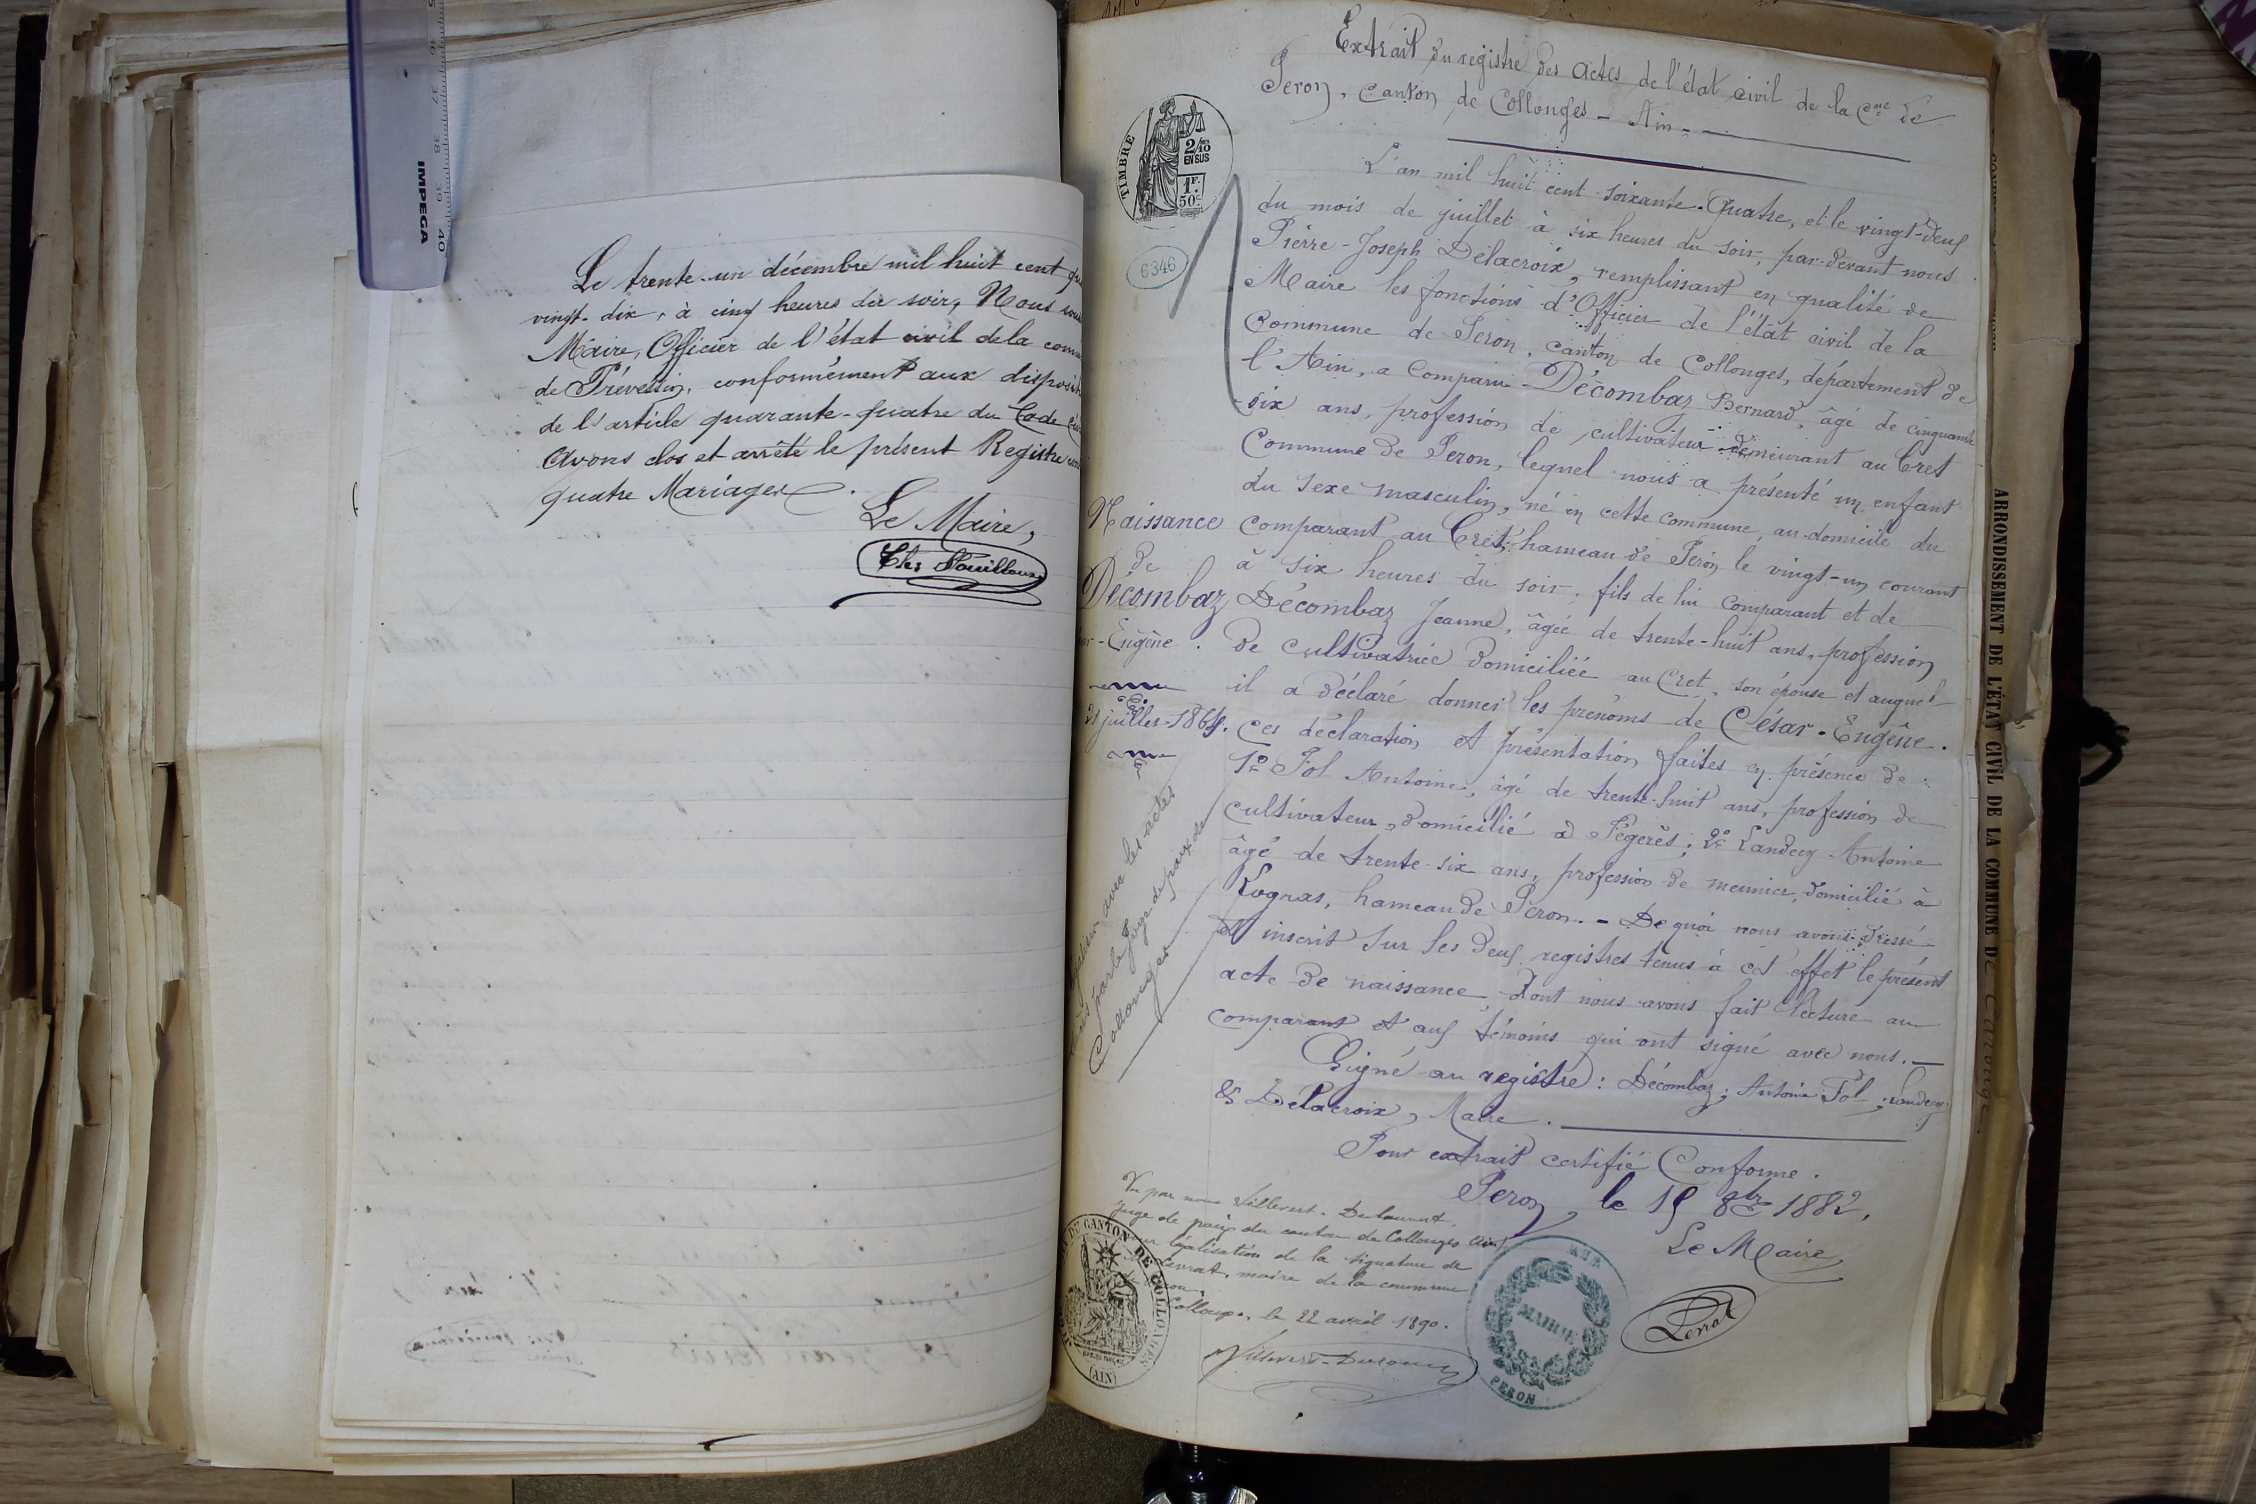 Le trente-un décembre mil huit cent
vingt-dix, à cinq heures du soir, Nous
Maire, Officier de l'état civil de la
de Prévessin, conformément aux
de l'article quarante-quatre du Code
avons clos et arrêté le présent Registre
quatre Mariages.
Le Maire,
IMPEGA
37 38 39 40
Extrait du registre des actes de l'état civil de la Cne de
Peron, canton de Collonges - Ain -
TIMBRE
2/10 EN SUS
1F. 50c
6346
L'an mil huit cent soixante-quatre, et le vingt-deux
du mois de juillet à six heures du soir, par-devant nous
Pierre-Joseph Delacroix, remplissant en qualité de
Maire les fonctions d'Officier de l'état civil de la
Commune de Peron, canton de Collonges, département de
l'Ain, a comparu Décombaz Bernard, âgé de cinquante
six ans, profession de cultivateur demeurant au Cret
Commune de Peron, lequel nous a présenté un enfant
du sexe masculin, né en cette commune, au domicile du
comparant au Cret, hameau de Peron le vingt-un courant
à six heures du soir, fils de lui comparant et de
Décombaz Jeanne, âgée de trente-huit ans, profession
de cultivatrice domiciliée au Cret, son épouse et auquel
il a déclaré donner les prénoms de César-Eugène.
Ces déclaration et présentation faites en présence de
1° Fol Antoine, âgé de trente-huit ans, profession de
cultivateur, domicilié à Fégerès; 2° Landecy Antoine
âgé de trente-six ans, profession de meunier, domicilié à
Logras, hameau de Peron. - De quoi nous avons dressé
et inscrit sur les deux registres tenus à cet effet le présent
acte de naissance dont nous avons fait lecture au
comparant et aux témoins qui ont signé avec nous. -
Signé au registre: Décombaz; Antoine Fol; Landecy
& Delacroix, Maire.
Pour extrait certifié Conforme.
Peron, le 15 8bre 1882,
Le Maire
Naissance
de
Décombaz
Eugène.
21 juillet 1864.
avec les actes
par le Juge de paix de
Collonges
Vu par nous Villevert-Dulaurent,
juge de paix du canton de Collonges (Ain)
légalisation de la signature de
maire de la commune
Collonges, le 22 avril 1890.
DU CANTON DE COLLONGES
(AIN)
MAIRIE
PERON
ARRONDISSEMENT DE L'ÉTAT CIVIL DE LA COMMUNE DE